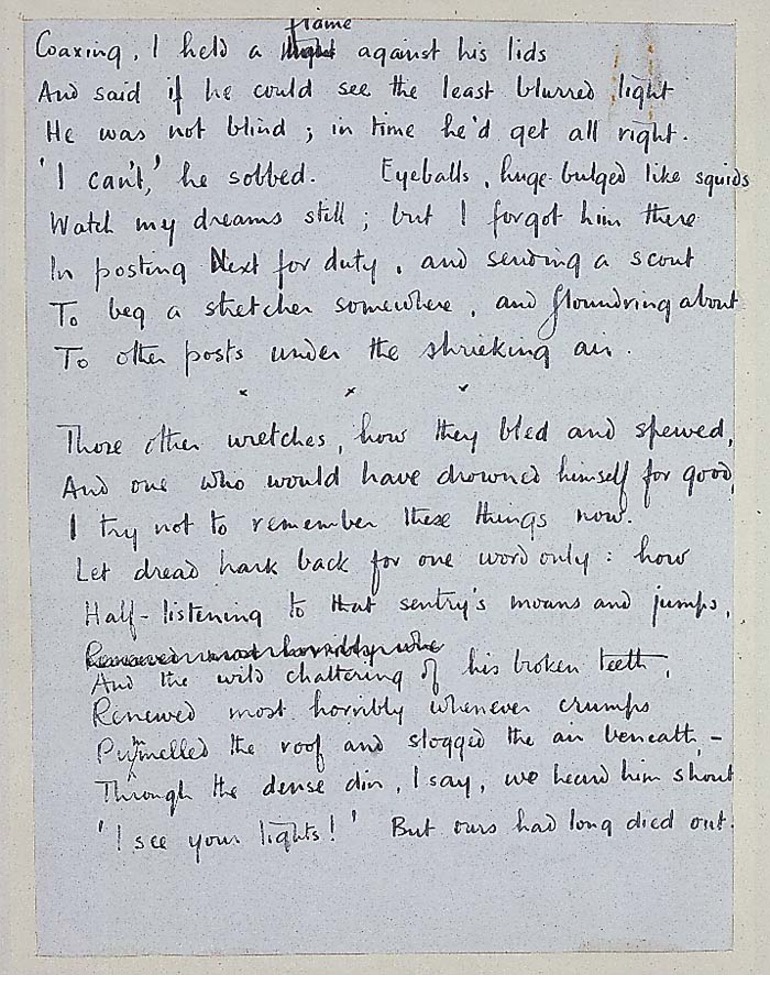 flame
Coaxing, I held a light against his lids
And said if he could see the least blurred light
He was not blind ; in time he'd get all right.
'I can't,' he sobbed. Eyeballs, huge-bulged like squids
Watch my dreams still ; but I forgot him there
In posting Next for duty, and sending a scout
To beg a stretcher somewhere, and floundring about
To other posts under the shrieking air.
× × ×
Those other wretches, how they bled and spewed,
And one who would have drowned himself for good,
I try not to remember these things now.
Let dread hark back for one word only : how
Half-listening to that sentry's moans and jumps,
Renewed most horribly whe
And the wild chattering of his broken teeth,
Renewed most horribly whenever crumps
Pummelled the roof and slogged the air beneath, –
Through the dense din, I say, we heard him shout
'I see your lights!' But ours had long died out.